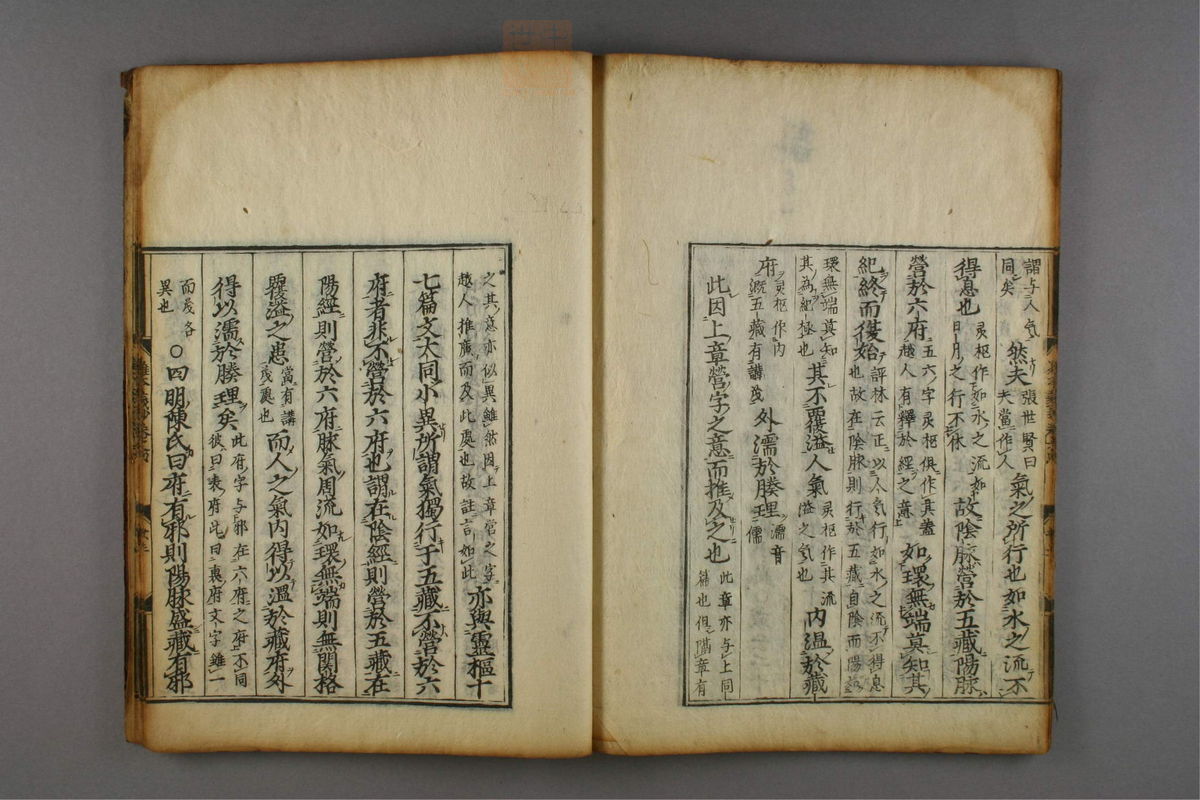 謂与人気同矣 然夫 張世賢曰夫當作人 氣之所行也如水之流不
得息也 灵枢作如水之流如日月之行不休 故陰脉營於五藏陽脉
營於六府 五六字灵枢俱作其蓋越人有釋於經之意 如環無端莫知其
紀終而復始 評林云正以人气行如水之流不得息也故在陰脉則行於五藏自陰而陽如
環無端莫知其為紀極也 其不覆溢人氣 灵枢作其流溢之气也 内温於藏
府 灵枢作内溉五藏 外濡於腠理 濡音儒
此因上章營字之意而推及之也 此章亦与上同篇也但 章有
之其意亦似異雖然因上章営之字越人推廣而及此處也故註言如此 亦與靈樞十
七篇文大同小異所謂氣獨行于五藏不營於六
府者非不營於六府也謂在陰經則營於五藏在
陽經則營於六府脉氣周流如環無端則無関格
覆溢之患 當有講 而人之氣内得以温於藏府外
得以濡於腠理矣 此府字与邪在六府之府不同彼曰表府此曰裏府文字雖一
而 各異也 ○四明陳氏曰府有邪則陽脉盛藏有邪